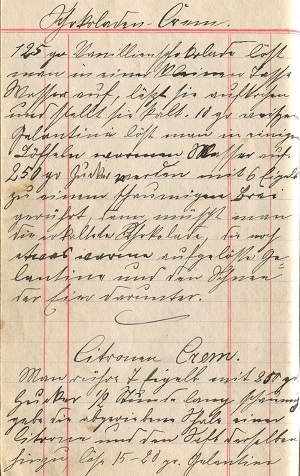 Schokoladen-Crem.
125 gr Vanillienschokolade löst
man in einer kleinen Tasse
Wasser auf, läßt sie aufkochen
und stellt sie kalt. 10 gr weiße
Gelantine löst man in einigen
Löffeln warmen Wasser auf.
250 gr Zucker werden mit 6 Eigelb
zu einem schaumigen Brei
gerührt, dann mischt man
die erkaltete Schokolade, die noch
etwas warme aufgelöste Ge-
lantine und den Schnee
der Eier darunter.
Citronen Crem.
Man rühre 7 Eigelb mit 250 gr
Zucker 1/2 Stunde lang schaumig
gebe die abgeriebene Schale einer
Citrone und den Saft derselben
hinzu löse 15-20 gr. Gelantine